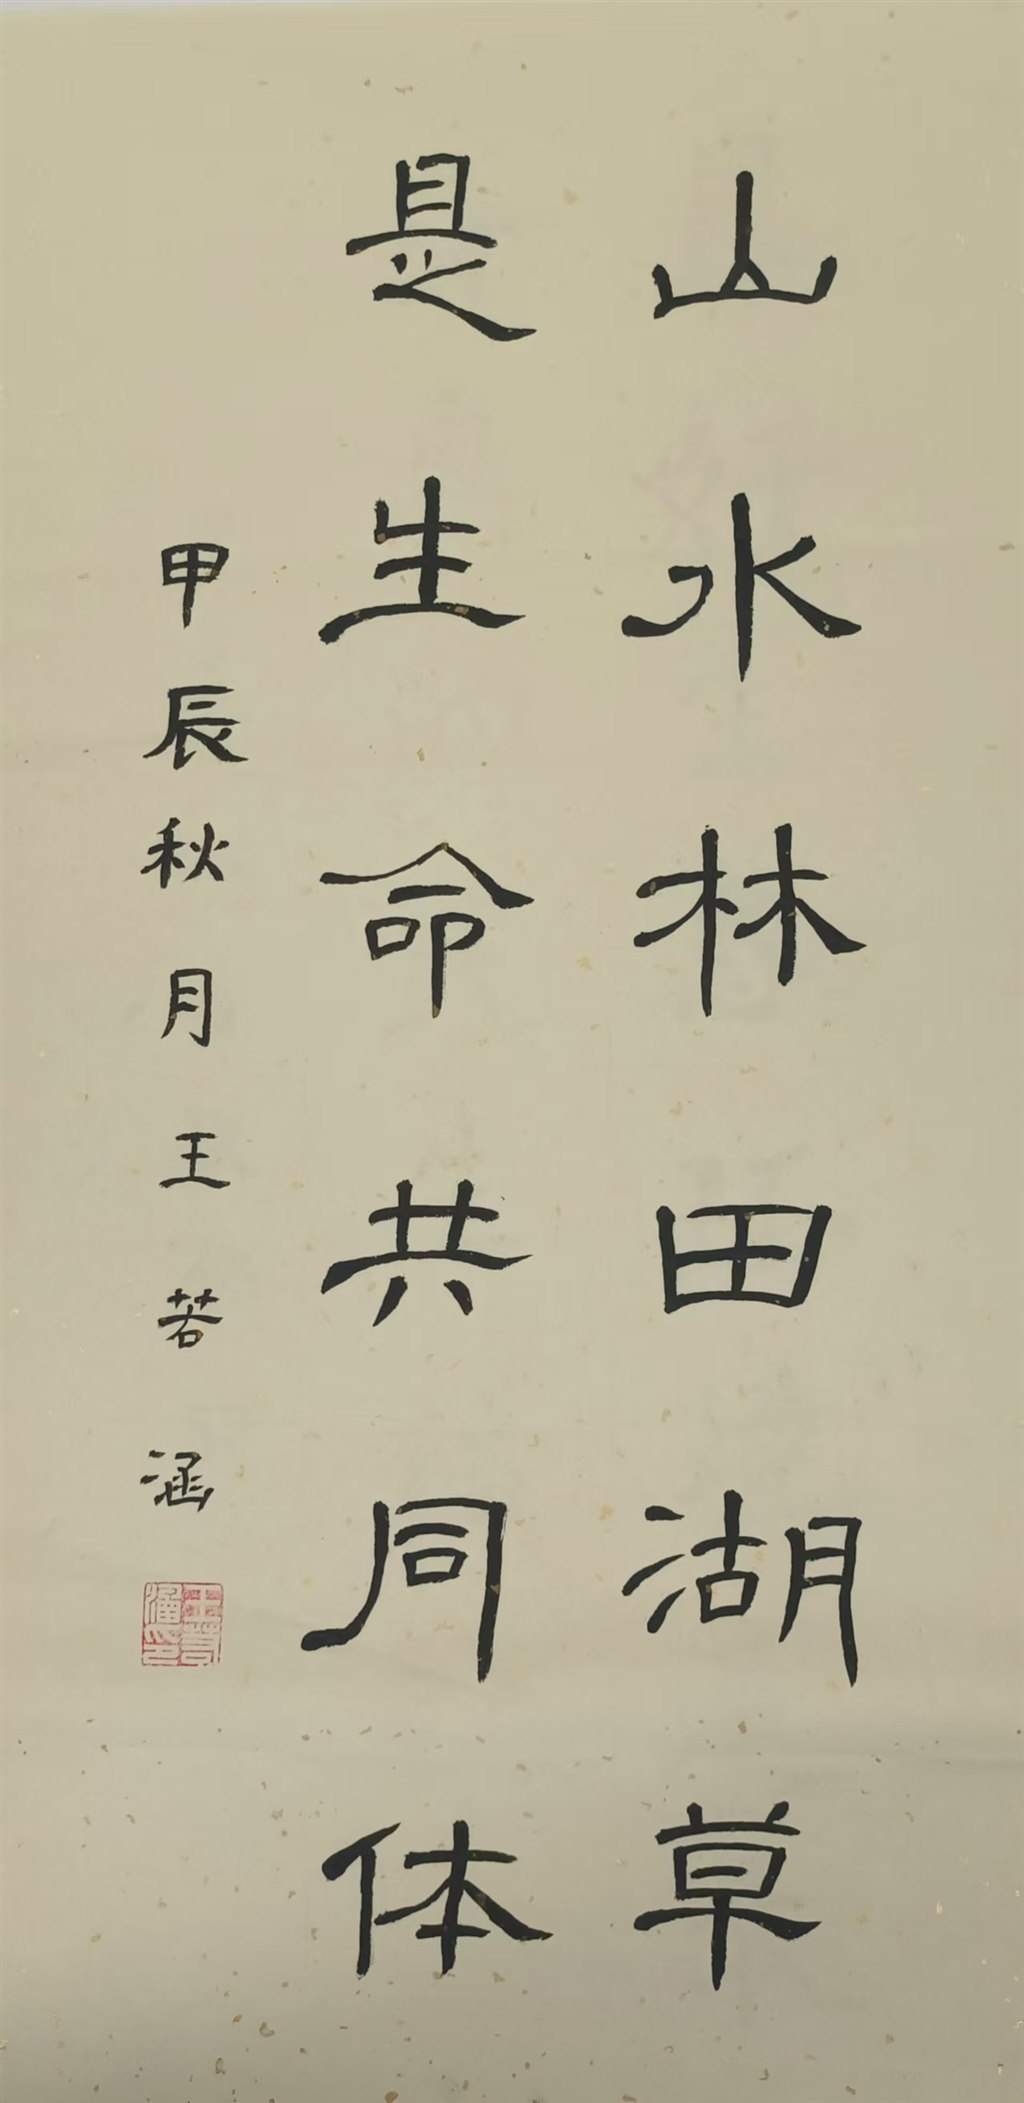 山水林田湖草
是生命共同体
甲辰秋月王若涵